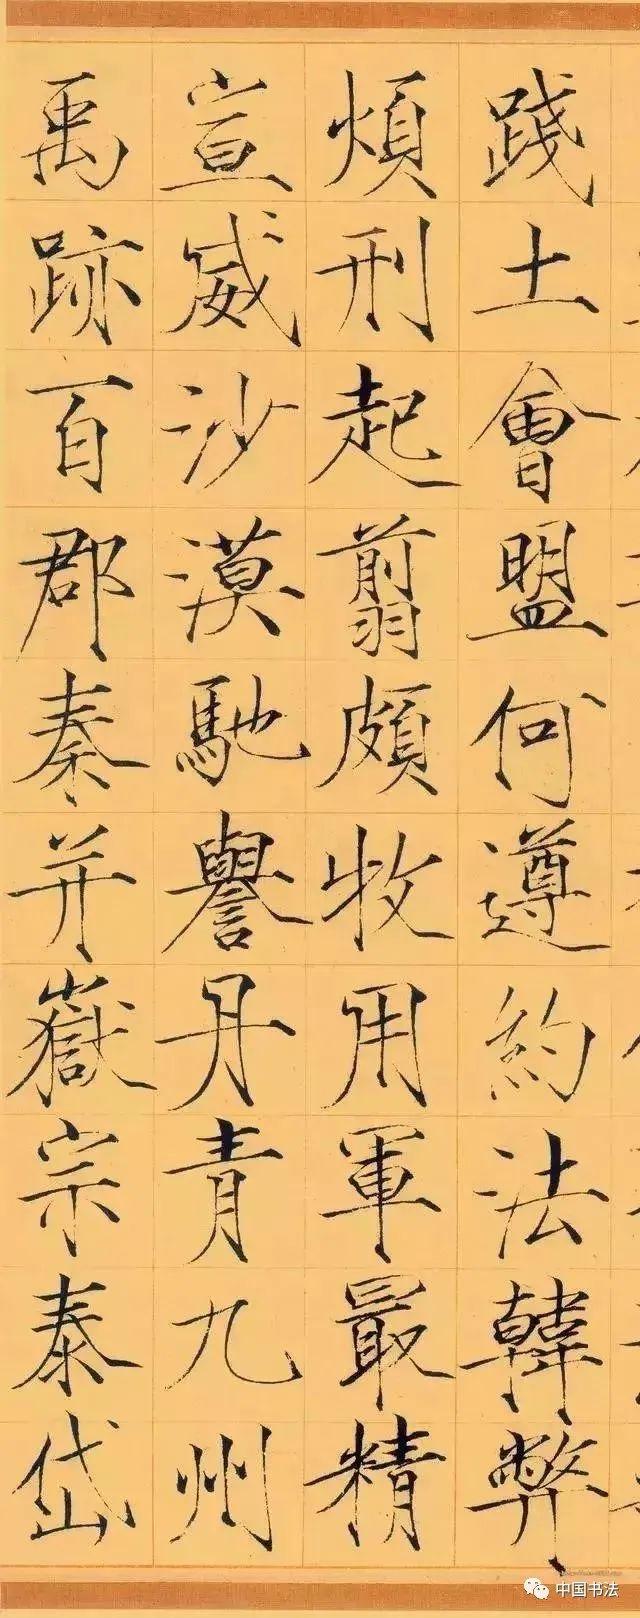 踐土會盟何遵約法韓弊
煩刑起翦頗牧用軍最精
宣威沙漠馳譽丹青九州
禹跡百郡秦并嶽宗泰岱
中国书法